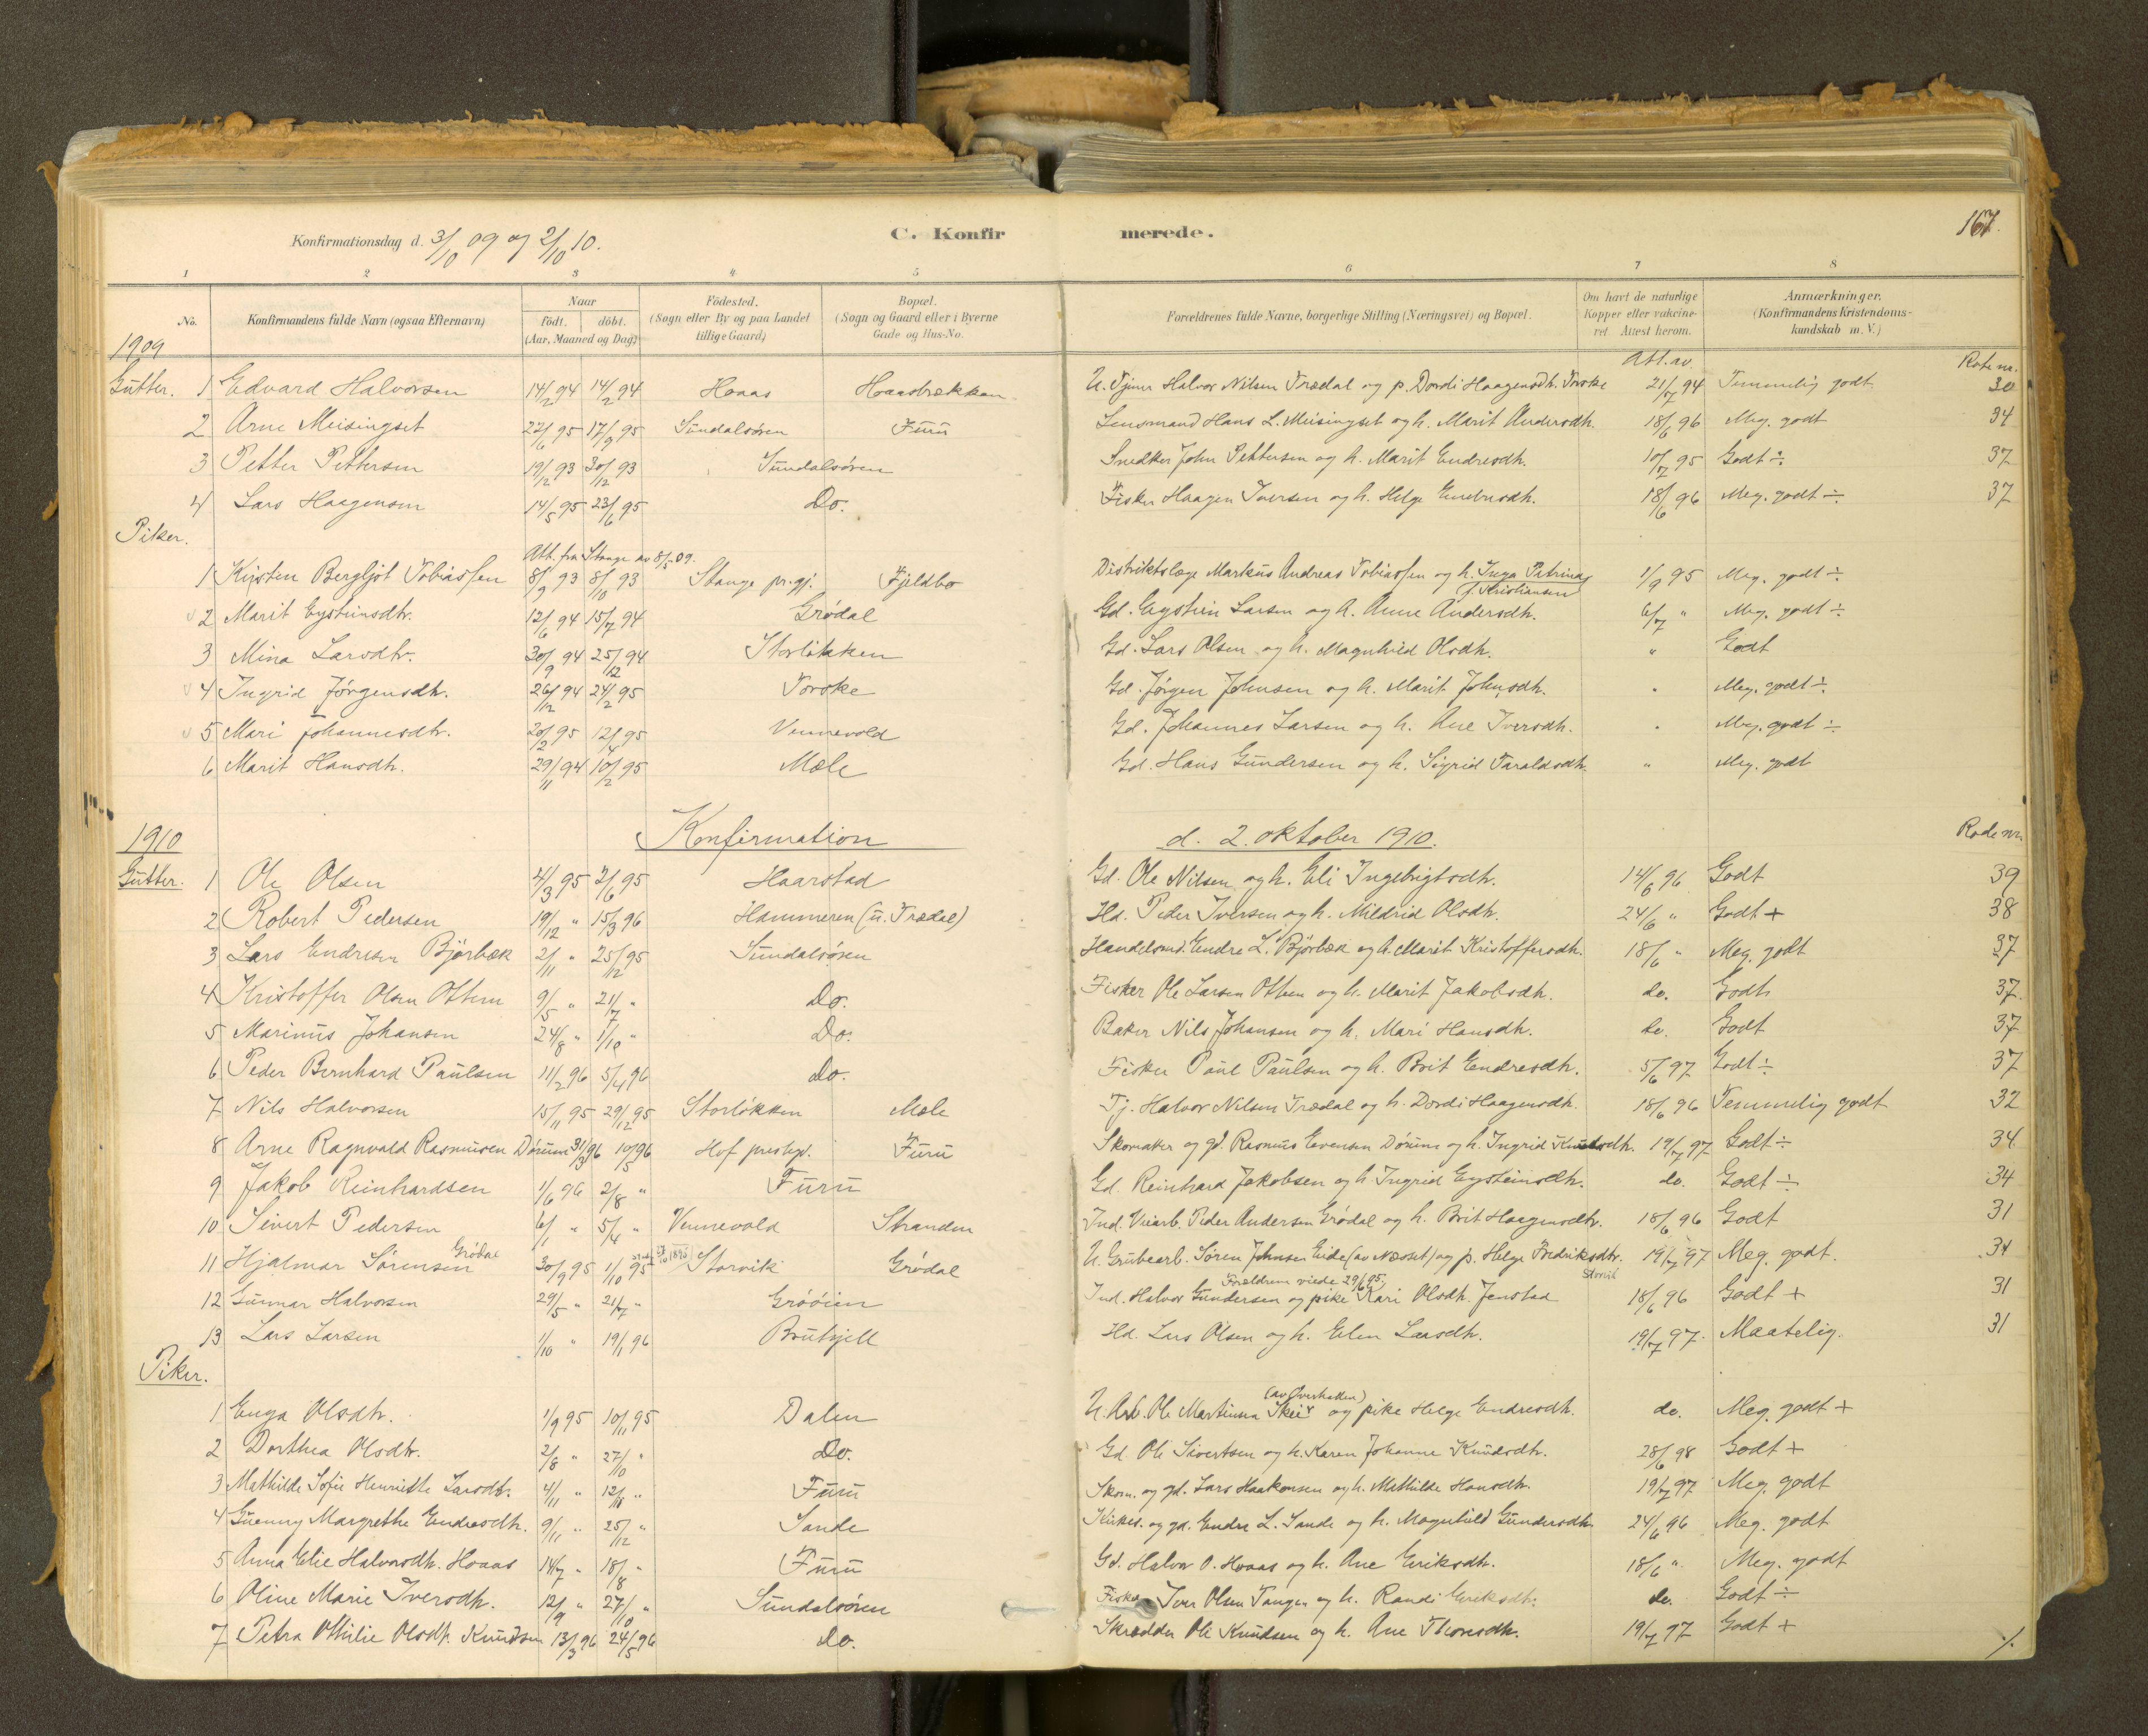 Konfirmationsdag d. 3/10 09 og 2/10 10. C. Konfirmerede. 167.
1 2 3 4 5 6 7 8
No. Konfirmandens fulde Navn (ogsaa Efternavn) Naar födt. döbt. (Aar, Maaned og Dag) Födested. (Sogn eller By og paa Landet tillige Gaard) Bopæl. (Sogn og Gaard eller i Byerne Gade og Hus-No. Forældrenes fulde Navne, borgerlige Stilling (Næringsvei) og Bopæl. Om havt de naturlige Kopper eller vakcineret Attest herom. Anmærkninger. (Konfirmandens Kristendomskundskab m. V.)
1909 Att. av Rode nr.
Gutter. 1 Edvard Halvorsen 14/2 94 14/2 94 Hoaas Hoaasbrækken U. Tjener Halvor Nilsen Trædal og p. Dordi Haagensdtr. Torske 21/7 94 Temmelig godt 30
2 Arne Meisingset 22/6 95 17/9 95 Sundalsøren Furu Lensmand Hans L. Meisingset og h. Marit Andersdtr. 18/6 96 Meg. godt 34
3 Petter Pettersen 19/12 93 30/12 93 Sundalsøren Snedker John Pettersen og h. Marit Endresdtr. 10/7 95 Godt ÷ 37
4 Lars Haagensen 14/5 95 23/6 95 Do. Fisker Haagen Iversen og h. Helge 18/6 96 Meg. godt ÷ 37
Piker.
Att. fra Stange av 8/5 09.
1 Kirsten Bergljot Tobiassen 8/9 93 8/10 93 Stange pr.gj. Fjeldbo Distriktslæge Markus Andreas Tobiassen og h. Inga Petrine f. Kristiansen 1/9 95 Meg. godt ÷
2 Marit Eysteinsdtr. 12/6 94 15/7 94 Grødal Gd. Eystein Larsen og h. Anne Andersdtr. 6/7 " Meg. godt ÷
3 Mina Larsdtr. 30/9 94 25/12 94 Storløkken Gd. Lars Olsen og h. Magnhild Olsdtr. " Godt
4 Ingrid Jørgensdtr. 26/12 94 24/2 95 Torske Gd. Jørgen Johnsen og h. Marit Johnsdtr. " Meg. godt ÷
5 Mari Johannesdtr. 20/2 95 12/4 95 Vennevold Gd. Johannes Larsen og h. Ane Iversdtr. " Meg. godt ÷
6 Marit Hansdtr. 29/11 94 10/2 95 Mæle Gd. Hans Gundersen og h. Sigrid Taraldsdtr. " Meg. godt
1910 Konfirmation d. 2. oktober 1910. Rode nr.
Gutter. 1 Ole Olsen 4/3 95 2/6 95 Haarstad Gd. Ole Nilsen og h. Eli Ingebrigtsdtr. 14/6 96 Godt 39
2 Robert Pedersen 19/12 " 15/3 96 Hammeren (u. Trædal) Hd. Peder Iversen og h. Mildrid Olsdtr. 24/6 " Godt + 38
3 Lars Endresen Bjørbæk 2/11 " 25/12 95 Sundalsøren Handelsmd. Endre L. Bjørbæk og h. Marit Kristoffersdtr. 18/6 " Meg. godt 37
4 Kristoffer Olsen Ottem 9/5 " 21/7 " Do. Fisker Ole Larsen Ottem og h. Marit Jakobsdtr. do. Godt 37.
5 Marinus Johansen 24/8 " 1/10 " Do. Baker Nils Johansen og h. Mari Hansdtr. do. Godt 37
6 Peder Bernhard Paulsen 11/2 96 5/4 96 do. Fisker Paul Paulsen og h. Brit Endresdtr. 5/6 97 Godt ÷ 37
7 Nils Halvorsen 15/11 95 29/12 95 Storløkken Mæle Tj. Halvor Nilsen Trædal og h. Dordi Haagensdtr. 18/6 96 Temmelig godt 32
8 Arne Ragnvald Rasmusen Dørum 31/3 96 10/5 96 Hof prestegj. Furu Skomaker og gd. Rasmus Evensen Dørum og h. Ingrid Knudsdtr. 19/7 97 Godt ÷ 34
9 Jakob Reinhardsen 1/6 96 2/8 " Furu Gd. Reinhard Jakobsen og h. Ingrid Eysteinsdtr. do. Godt ÷ 34
10 Sivert Pedersen 6/1 " 5/4 " Vennevold Stranden Ind. Veiarb. Peder Andersen Grødal og h. Brit Haagensdtr. 18/6 96 Godt 31
11 Hjalmar Sørensen Grødal 30/9 95 1/10 95 Storvik Grødal U. Grubearb. Søren Johnsen Eide (av Næsset) og p. Helge Fredriksdtr. Storvik 19/7 97 Meg. godt. 34
Forældrene viede 29/6 95.
12 Gunnar Halvorsen 29/5 " 21/7 " Grøóien Ind. Halvor Gundersen og pike Kari Olsdtr. Jenstad 18/6 96 Godt + 31
13 Lars Larsen 1/10 " 19/1 96 Bruhjell Hd. Lars Olsen og h. Elen Larsdtr. 19/7 97. Maatelig. 31
Piker.
1 Enga Olsdtr. 1/9 95 10/11 95 Dalen U. Arb. Ole Martinsen Skei (av Overhallen) og pike Helge Endresdtr. do. Meg. godt +
2 Dorthea Olsdtr. 2/8 " 27/10 " Do. Gd. Ole Sivertsen og h. Karen Johanne Knudsdtr. 28/6 98 Godt +
3 Mathilde Sofie Henriette Larsdtr. 4/11 " 12/11 " Furu Skom. og gd. Lars Haakonsen og h. Mathilde Hansdtr. 19/7 97 Meg. godt
4 Guenny Margrethe Endresdtr. 9/11 " 25/12 " Sande Kirkes. og gd. Endre L. Sande og h. Magnhild Gundersdtr. 24/6 96 Meg. godt
5 Anna Elie Halvorsdtr. Hoaas 14/7 " 18/8 " Furu Gd. Halvor O. Hoaas og h. Ane Eriksdtr. 18/6 " Meg. godt
6 Oline Marie Iversdtr. 12/9 " 27/10 " Sundalsøren Fisker Iver Olsen Tangen og h. Randi Eriksdtr. do. Godt ÷
7 Petra Othilie Olsdtr. Knudsen 13/3 96 24/5 96 do. Skrædder Ole Knudsen og h. Ane Thoresdtr. 19/7 97 Godt + ./.